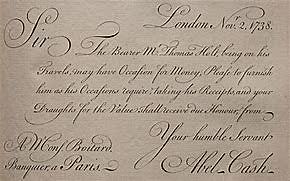 London Nov.r 2, 1738.
Sir
The Bearer Mr. Thomas Hill, being on his
Travels, may have Occasion for Money; Please to furnish
him as his Occasions require, taking his Receipts, and your
Draughts for the Value shall receive due Honour, from
Your humble Servant
A Mons.r Boitard,
Banquier, a Paris.
Abel Cash.